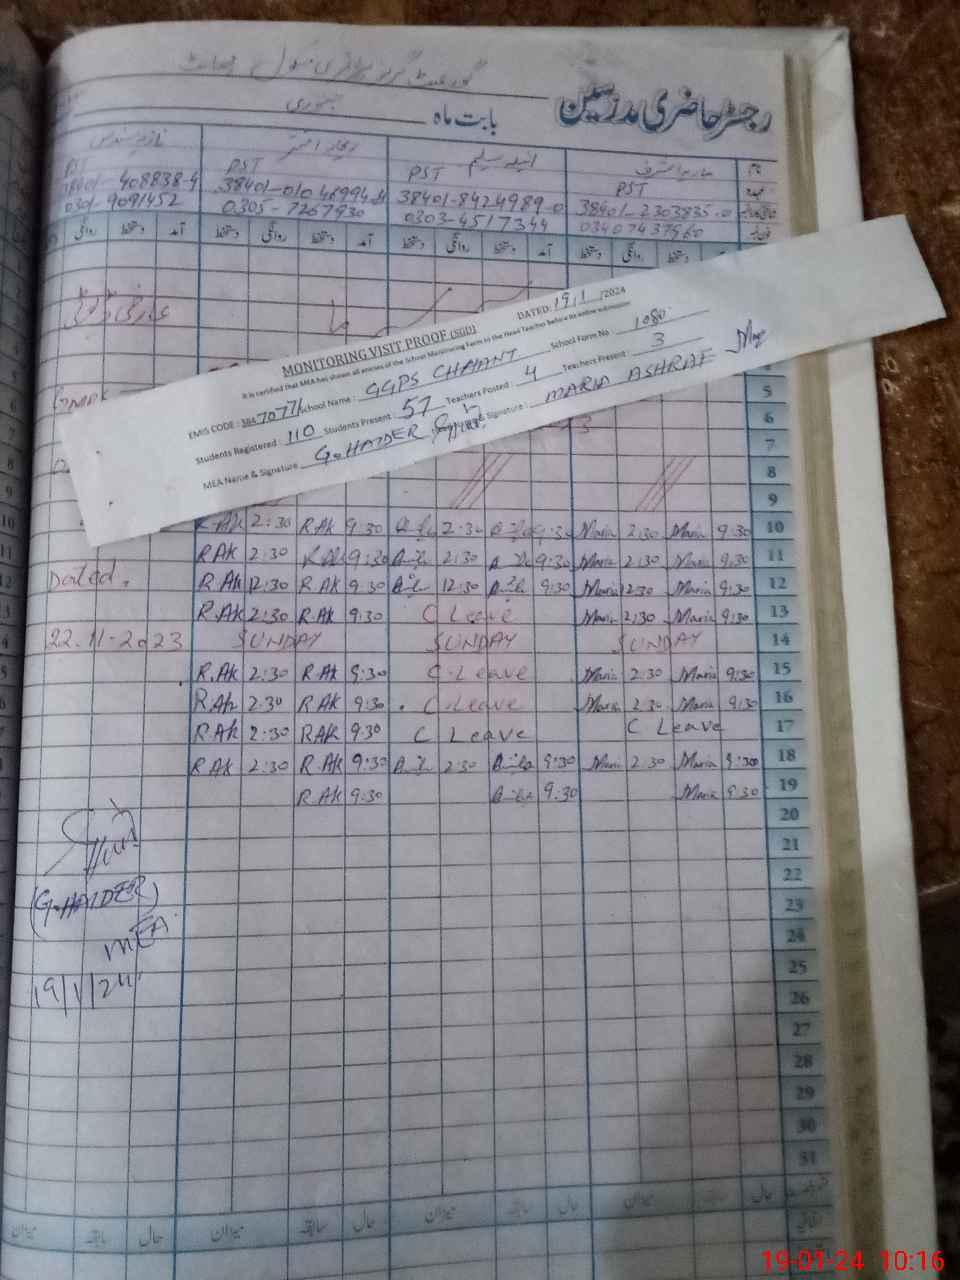 رجسٹر حاضری مدرسین
بابت ماہ جنوری
نام
PST PST PST PST
38401-2303835-0 38401-8424989-0
03407437960 0303-4517344 0305-7267930 0301-9091452
آمد دستخط روانگی دستخط آمد دستخط روانگی دستخط آمد دستخط روانگی دستخط
MONITORING VISIT PROOF (SGD)
DATED: 19/1/2024
It is certified that MEA has shown all entries of the School Monitoring Form to the Head Teacher before its online submission
EMIS CODE: 38470771 School Name: GGPS CHAANT School Form No: 1080
Students Registered: 110 Students Present: 57 Teachers Posted: 4 Teachers Present: 3
MEA Name & Signature G. HAIDER Signature: MARIA ASHRAF
5
6
7
8
9
R.AK 2:30 R AK 9:30 2:30 9:30 Maria 2:30 Maria 9:30 10
R AK 2:30 R AK 9:30 2:30 9:30 Maria 2:30 Maria 9:30 11
Dated. R AK 12:30 R AK 9:30 12:30 9:30 Maria 12:30 Maria 9:30 12
R.AK 2:30 R AK 9:30 C Leave Maria 2:30 Maria 9:30 13
22-11-2023 SUNDAY SUNDAY SUNDAY 14
R.AK 2:30 R AK 9:30 C-Leave Maria 2:30 Maria 9:30 15
R AK 2:30 R AK 9:30 C-Leave Maria 2:30 Maria 9:30 16
R AK 2:30 R AK 9:30 C Leave C Leave 17
R AK 2:30 R AK 9:30 2:30 9:30 Maria 2:30 Maria 9:30 18
R AK 9:30 9:30 Maria 9:30 19
20
21
22
(G.HAIDER) 23
MEA 24
25
19/1/24 26
27
28
29
30
31
حال سابقہ میزان حال سابقہ میزان حال سابقہ میزان حال سابقہ میزان
19-01-24 10:16